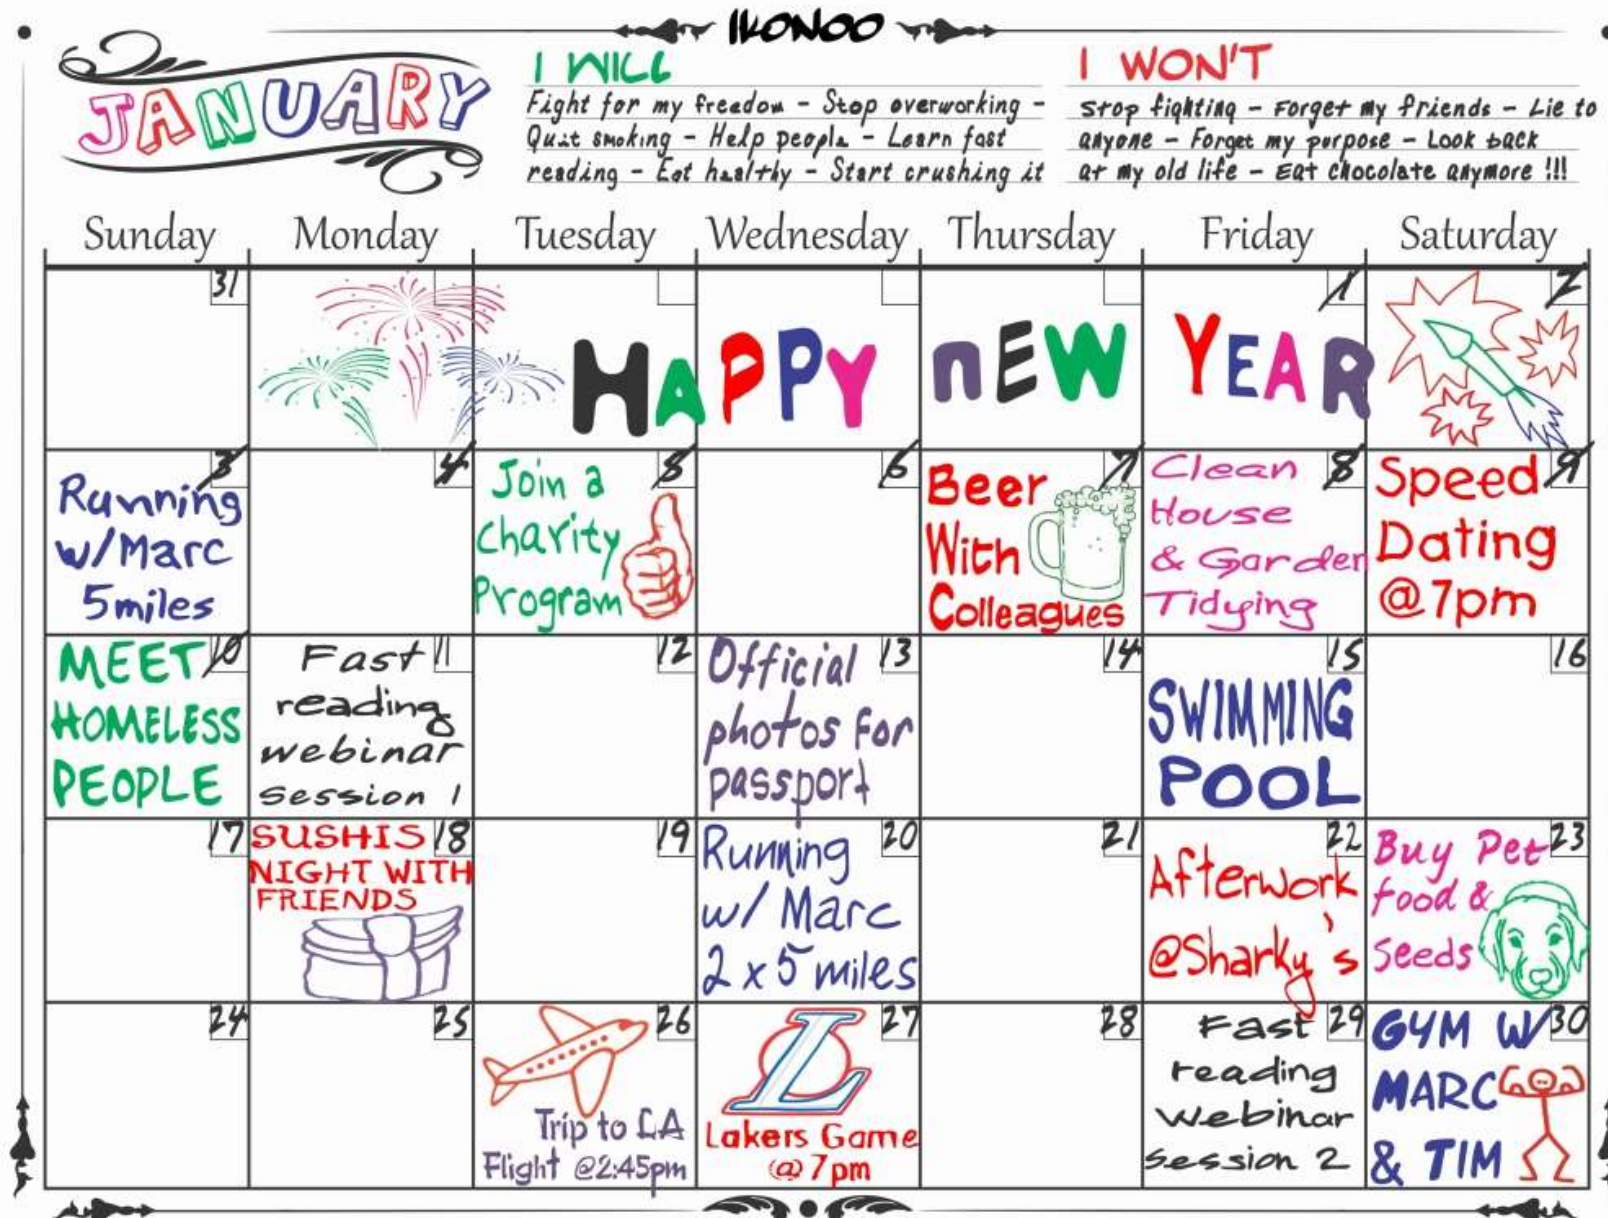 IKONOO
JANUARY
I WILL
Fight for my freedom - Stop overworking -
Quit smoking - Help people - Learn fast
reading - Eat healthy - Start crushing it
I WON'T
Stop fighting - Forget my friends - Lie to
anyone - Forget my purpose - Look back
at my old life - Eat chocolate anymore !!!
Sunday Monday Tuesday Wednesday Thursday Friday Saturday
31
1
2
HAPPY nEW YEAR
3
Running
w/Marc
5miles
4
5
Join a
charity
Program
6
7
Beer
With
Colleagues
8
Clean
House
& Garden
Tidying
9
Speed
Dating
@7pm
10
MEET
HOMELESS
PEOPLE
11
Fast
reading
webinar
session 1
12
13
Official
photos for
passport
14
15
SWIMMING
POOL
16
17
18
SUSHIS
NIGHT WITH
FRIENDS
19
20
Running
w/ Marc
2 x 5 miles
21
22
Afterwork
@Sharky's
23
Buy Pet
food &
Seeds
24
25
26
Trip to LA
Flight @2:45pm
27
L
Lakers Game
@ 7pm
28
29
Fast
reading
webinar
session 2
30
GYM W/
MARC
& TIM